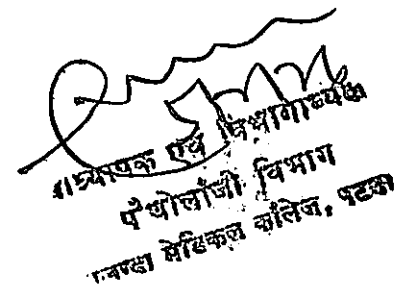 प्राध्यापक एवं विभागाध्यक्ष
पैथोलॉजी विभाग
मेडिकल कॉलेज, पटना